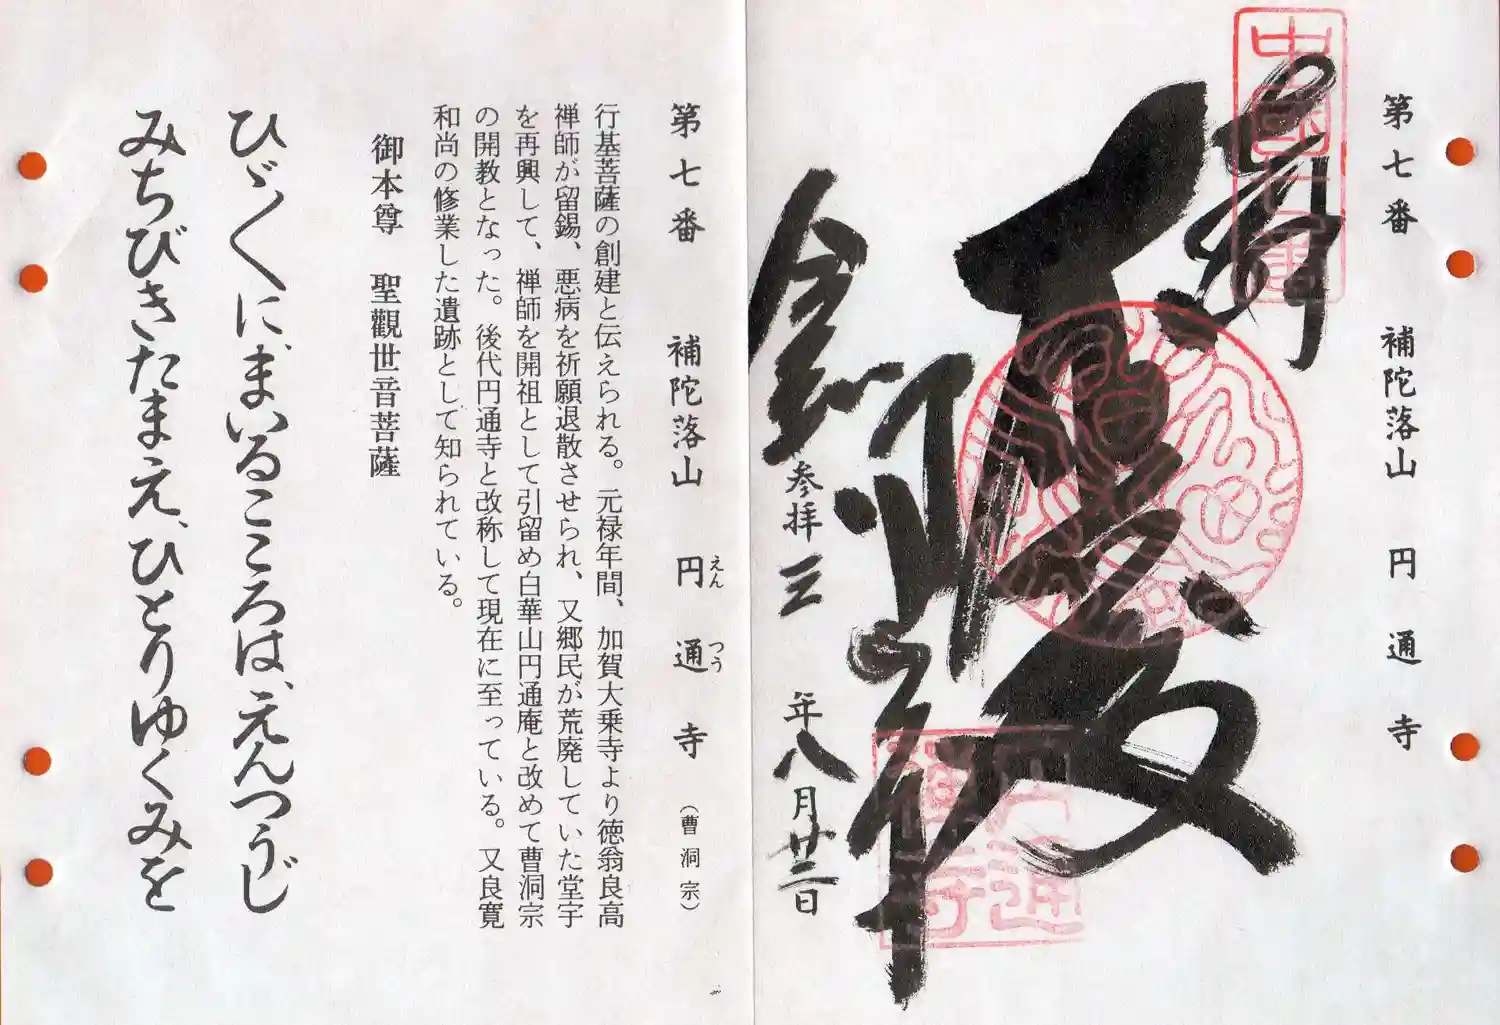 第七番 補陀落山 円通寺
奉拝
參拝 三 年八月廿二日
第七番 補陀落山 円通寺 (曹洞宗)
えん つう
行基菩薩の創建と伝えられる。元禄年間、加賀大乗寺より徳翁良高
禅師が留錫、悪病を祈願退散させられ、又郷民が荒廃していた堂宇
を再興して、禅師を開祖として引留め白華山円通庵と改めて曹洞宗
の開教となった。後代円通寺と改称して現在に至っている。又良寛
和尚の修業した遺跡として知られている。
御本尊 聖觀世音菩薩
ひゞ〱に、まいるこころは、えんつうじ
みちびきたまえ、ひとりゆくみを